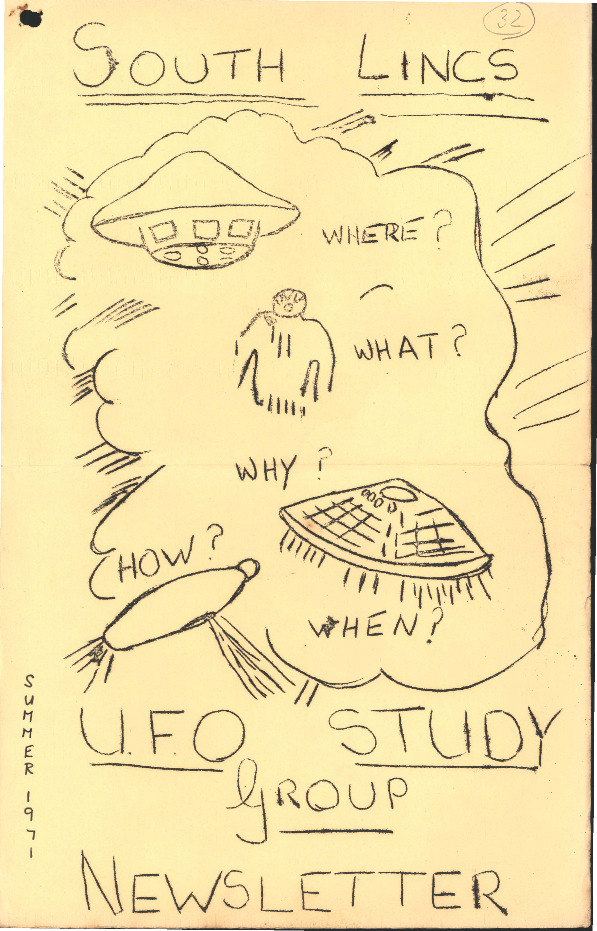 32
SOUTH LINCS
WHERE?
WHAT?
WHY?
HOW?
WHEN?
U.F.O STUDY
GROUP
NEWSLETTER
SUMMER 1971